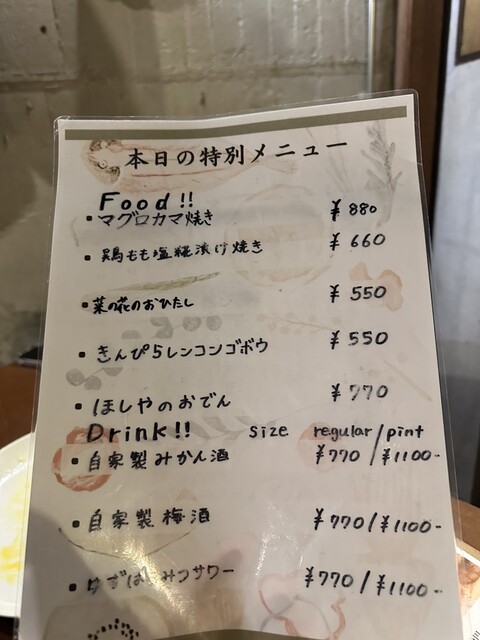 本日の特別メニュー
Food!!
・マグロカマ焼き ¥880
・鶏もも塩糀漬け焼き ¥660
・菜の花のおひたし ¥550
・きんぴらレンコンゴボウ ¥550
・ほしやのおでん ¥770
Drink!! size regular/pint
・自家製みかん酒 ¥770/¥1100-
・自家製梅酒 ¥770/¥1100-
・ゆずはちみつサワー ¥770/¥1100-